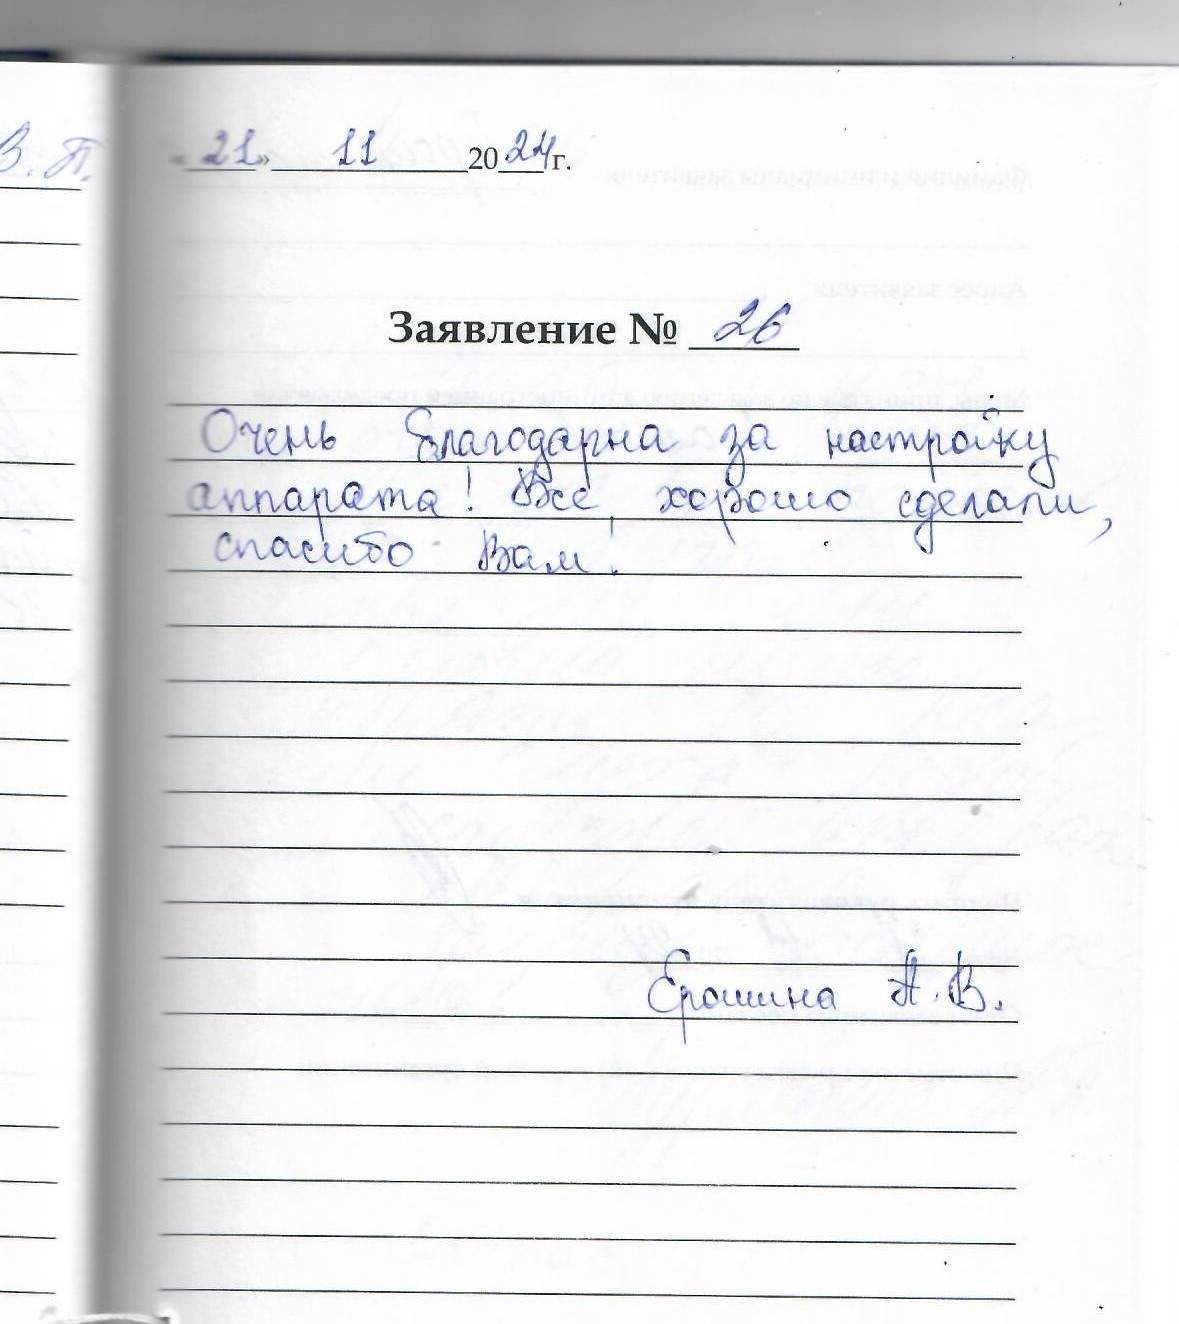 В. П.
«21» 11 2024г.
Заявление № 26
Очень благодарна за настройку
аппарата! Все хорошо сделали,
спасибо Вам!
Ерошина А. В.